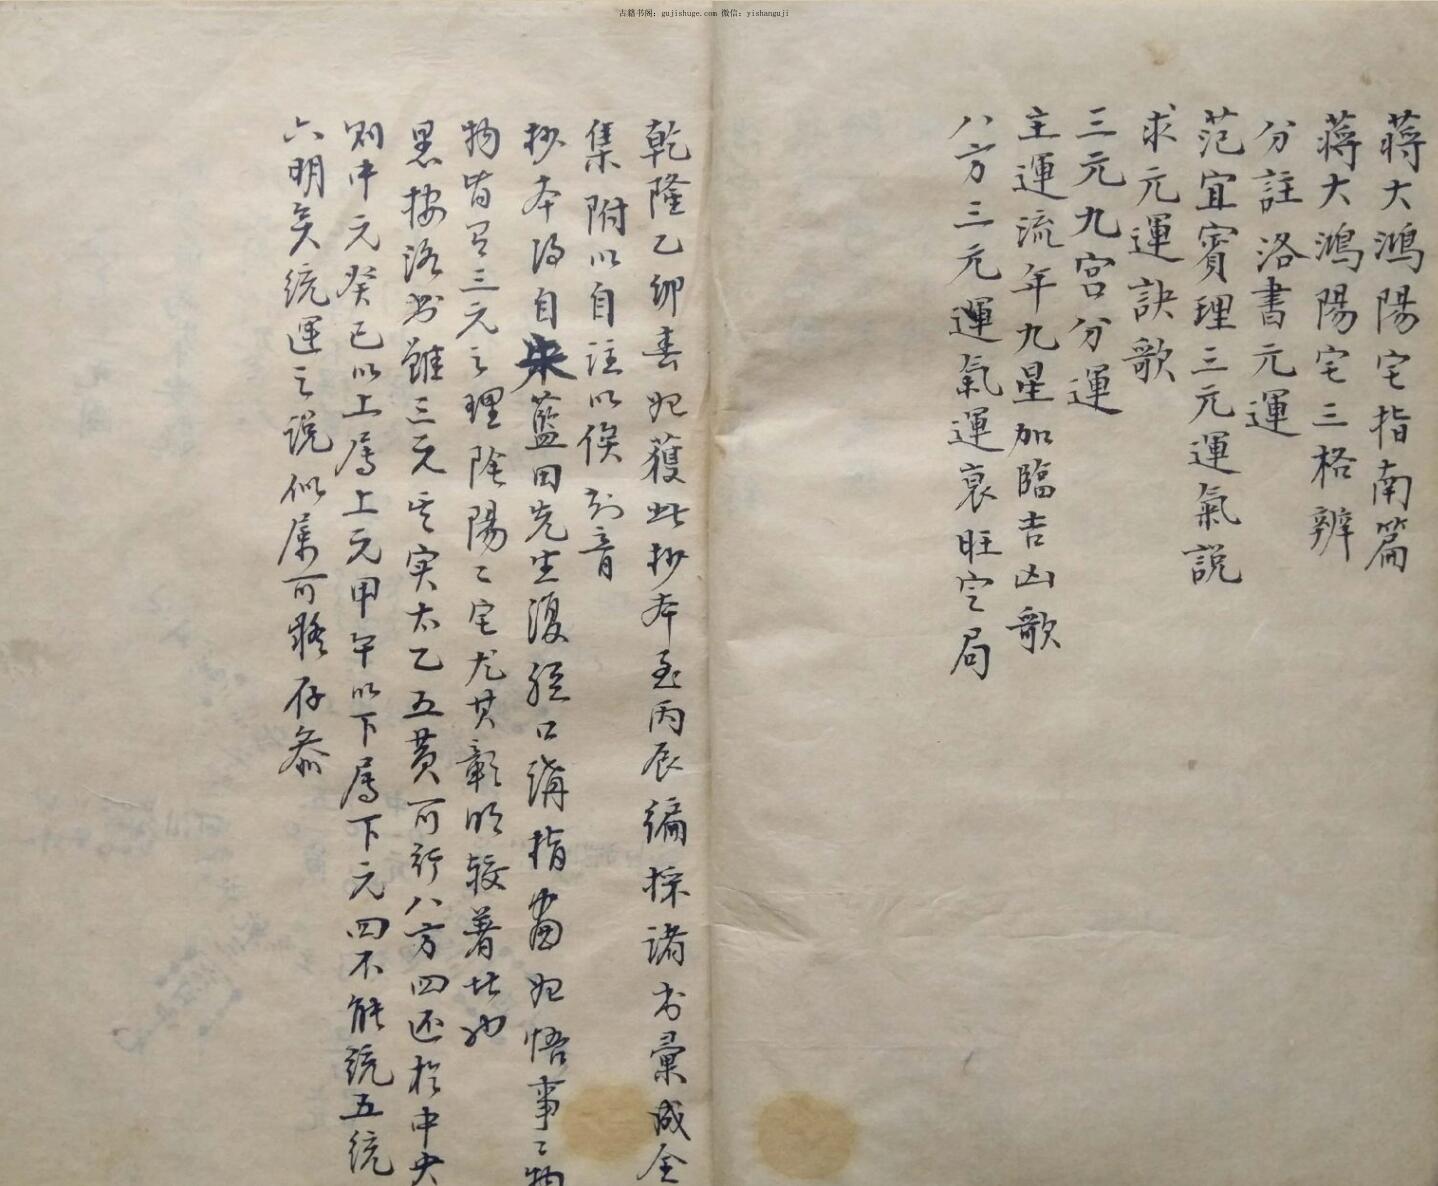 古籍书阁：gujishuge.com 微信：yishanguji
蔣大鴻陽宅指南篇
蔣大鴻陽宅三格辨
分註洛書元運
范宜賓理三元運氣說
求元運訣歌
三元九宮分運
主運流年九星加臨吉凶歌
八方三元運氣運衰旺定局
乾隆乙卯春始獲此抄本至丙辰編採諸书彙成全
集附以自註以俟刻音
抄本得自 藍田先生復经口講指畵始悟事〻物
物皆有三元之理陰陽二宅尤其彰明较著女也
黑按洛书雖三元其实太乙五黄可行八方四还於中央
则中元癸巳以上屬上元甲午以下屬下元四不能統五統
六明矣統運之说似属可疑存叅